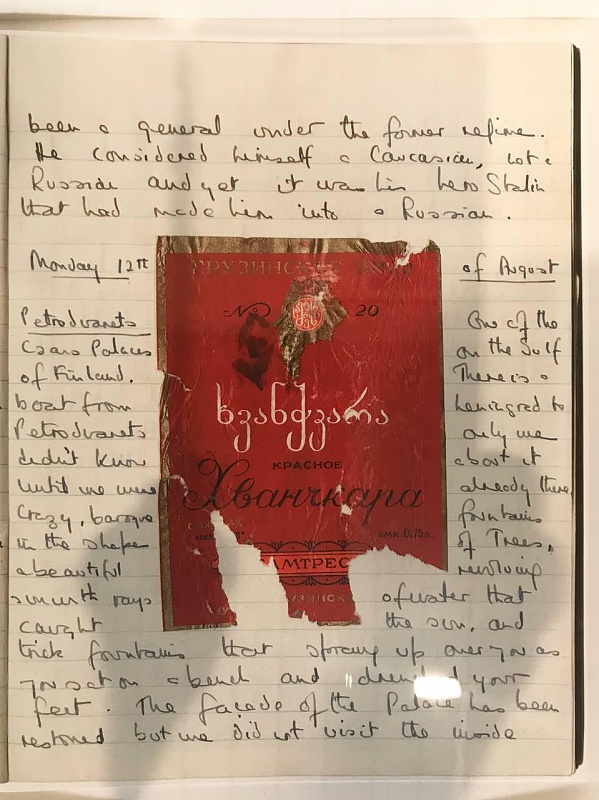 been a general under the former regime.
He considered himself a Caucasian, not a
Russian and yet it was his hero Stalin
that had made him into a Russian.
Monday 12th of August
Petrodvorets One of the
Czars Palaces on the Gulf
of Finland. There is a
boat from Leningrad to
Petrodvorets only we
didn't know about it
until we were already there.
Crazy, baroque fountains
in the shape of Trees,
a beautiful revolving
sun with rays of water that
caught the sun, and
trick fountains that sprang up over you as
you sat on a bench and drenched your
feet. The façade of the Palace has been
restored but we did not visit the inside
ГРУЗИНСКОЕ ВИНО
№ 20
ხვანჭკარა
КРАСНОЕ
Хванчкара
ЕМК. 0,75л.
САМТРЕСТ